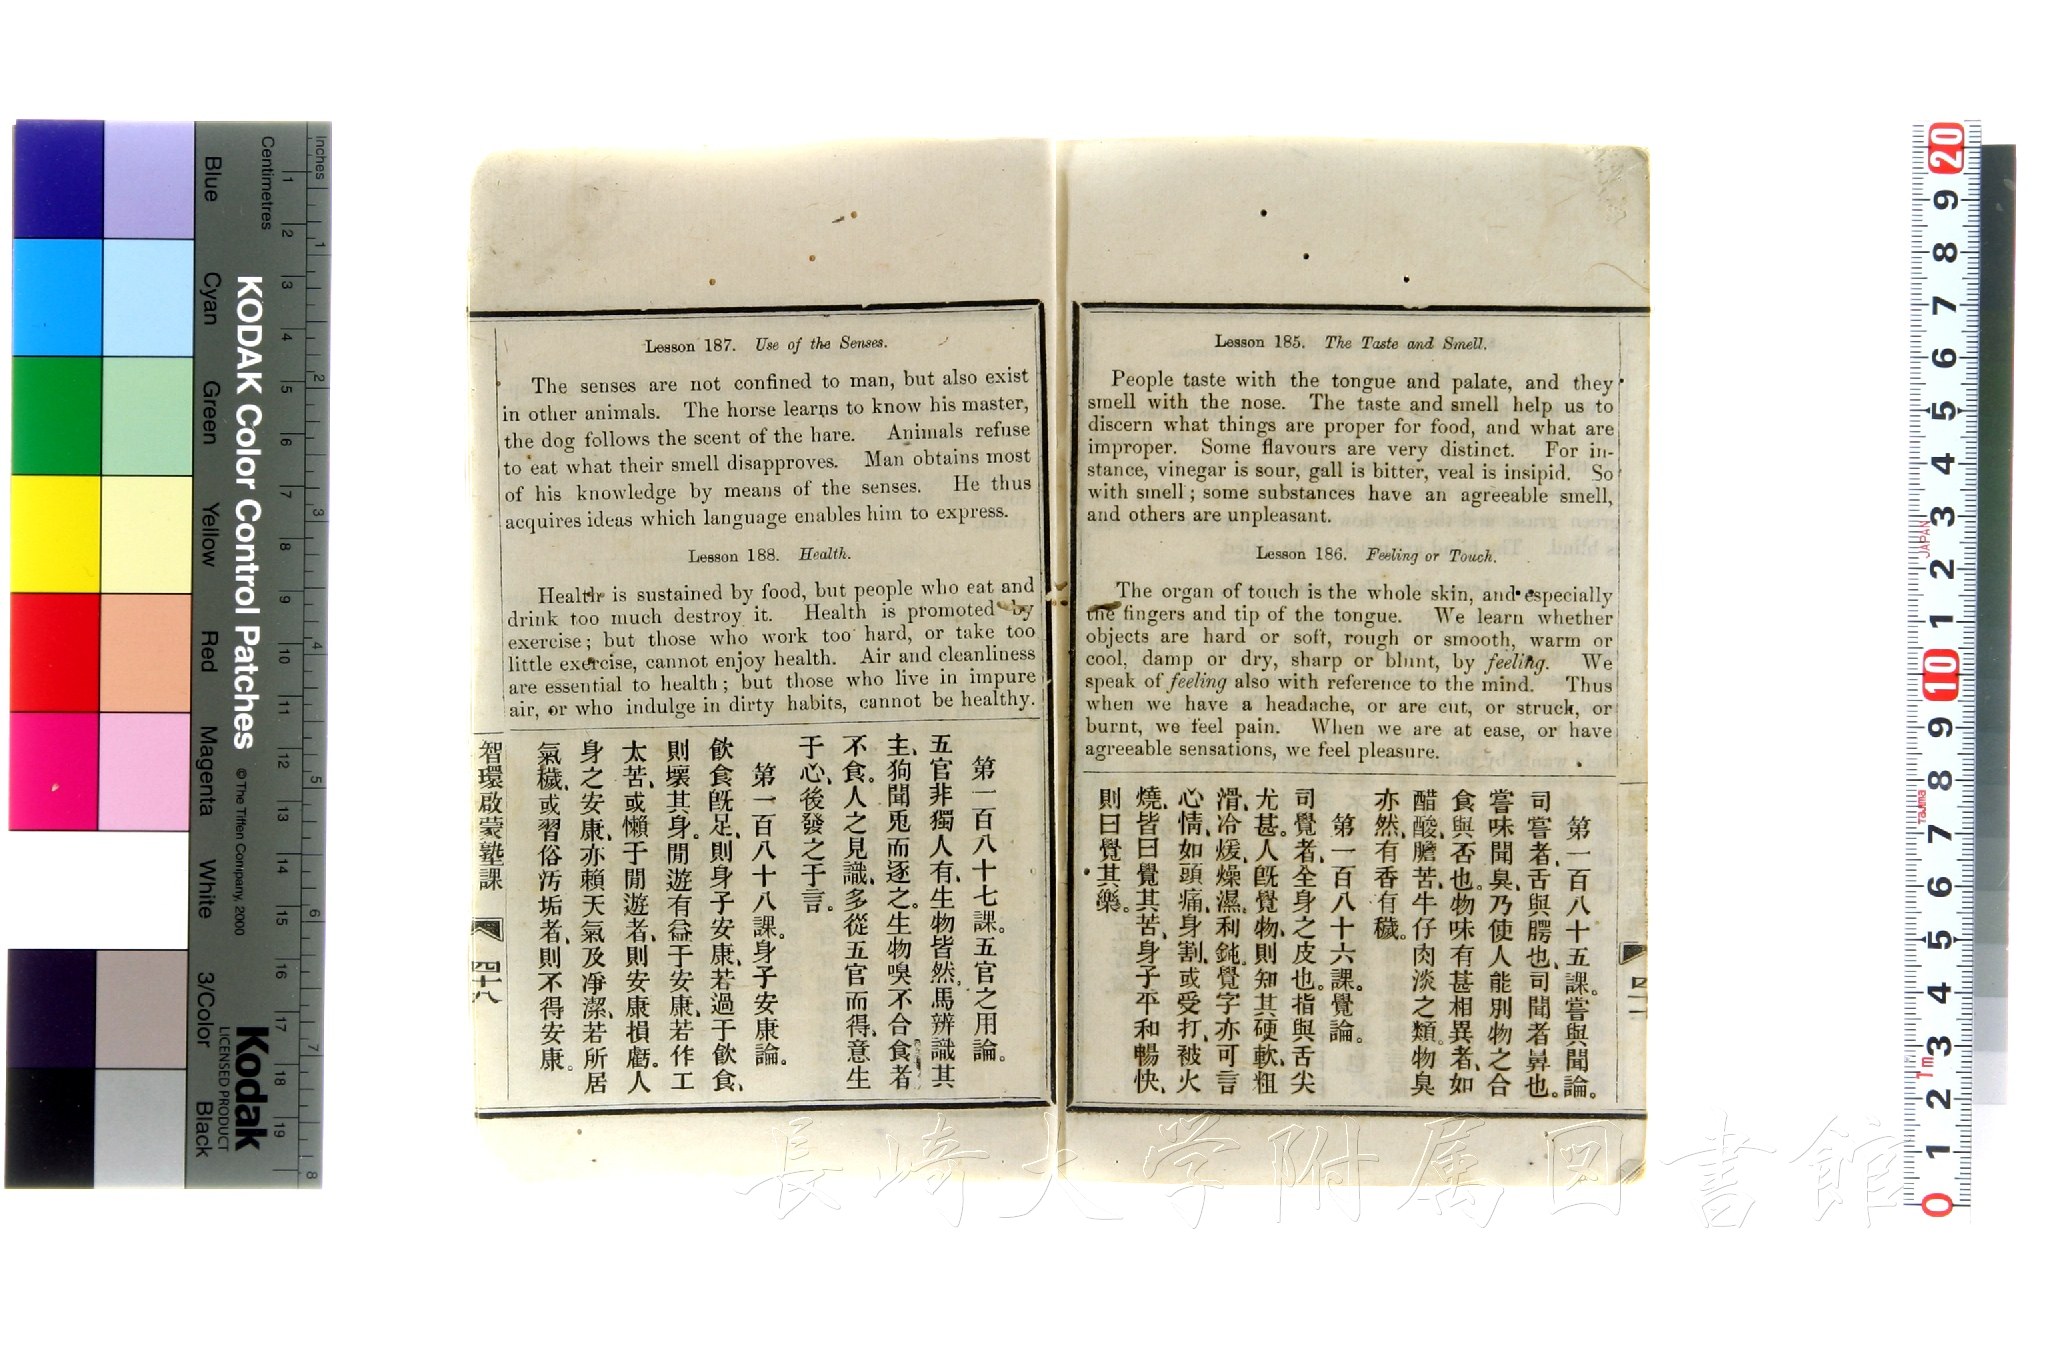 Lesson 185. The Taste and Smell.
People taste with the tongue and palate, and they
smell with the nose. The taste and smell help us to
discern what things are proper for food, and what are
improper. Some flavours are very distinct. For in-
stance, vinegar is sour, gall is bitter, veal is insipid. So
with smell; some substances have an agreeable smell,
and others are unpleasant.
Lesson 186. Feeling or Touch.
The organ of touch is the whole skin, and especially
the fingers and tip of the tongue. We learn whether
objects are hard or soft, rough or smooth, warm or
cool, damp or dry, sharp or blunt, by feeling. We
speak of feeling also with reference to the mind. Thus
when we have a headache, or are cut, or struck, or
burnt, we feel pain. When we are at ease, or have
agreeable sensations, we feel pleasure.
第一百八十五課。嘗與聞論。
司嘗者、舌與腭也、司聞者鼻也。
嘗味聞臭、乃使人能別物之合
食與否也。物味有甚相異者、如
醋酸、膽苦、牛仔肉淡之類。物臭
亦然、有香有穢。
第一百八十六課。覺論。
司覺者、全身之皮也。指與舌尖
尤甚。人旣覺物、則知其硬軟、粗
滑、冷煖、燥濕、利鈍。覺字亦可言
心情、如頭痛、身割、或受打、被火
燒、皆曰覺其苦、身子平和暢快、
則曰覺其樂。
Lesson 187. Use of the Senses.
The senses are not confined to man, but also exist
in other animals. The horse learns to know his master,
the dog follows the scent of the hare. Animals refuse
to eat what their smell disapproves. Man obtains most
of his knowledge by means of the senses. He thus
acquires ideas which language enables him to express.
Lesson 188. Health.
Health is sustained by food, but people who eat and
drink too much destroy it. Health is promoted by
exercise; but those who work too hard, or take too
little exercise, cannot enjoy health. Air and cleanliness
are essential to health; but those who live in impure
air, or who indulge in dirty habits, cannot be healthy.
第一百八十七課。五官之用論。
五官非獨人有、生物皆然。馬辨識其
主、狗聞兎而逐之。生物嗅不合食者
不食。人之見識、多從五官而得、意生
于心、後發之于言。
第一百八十八課。身子安康論。
飲食旣足、則身子安康、若過于飲食、
則壞其身。閒遊有益于安康、若作工
太苦、或懶于閒遊者、則安康損虧。人
身之安康、亦賴天氣及凈潔、若所居
氣穢、或習俗汚垢者、則不得安康。
智環啟蒙塾課
四十八
KODAK Color Control Patches
© The Tiffen Company, 2000
Kodak
LICENSED PRODUCT
Inches
Centimetres
Blue
Cyan
Green
Yellow
Red
Magenta
White
3/Color
Black
1 2 3 4 5 6 7 8 9 10 11 12 13 14 15 16 17 18 19
1 2 3 4 5 6 7 8
20 9 8 7 6 5 4 3 2 1 10 9 8 7 6 5 4 3 2 1 0
JAPAN
Tajima
Tm
長崎大学附属図書館